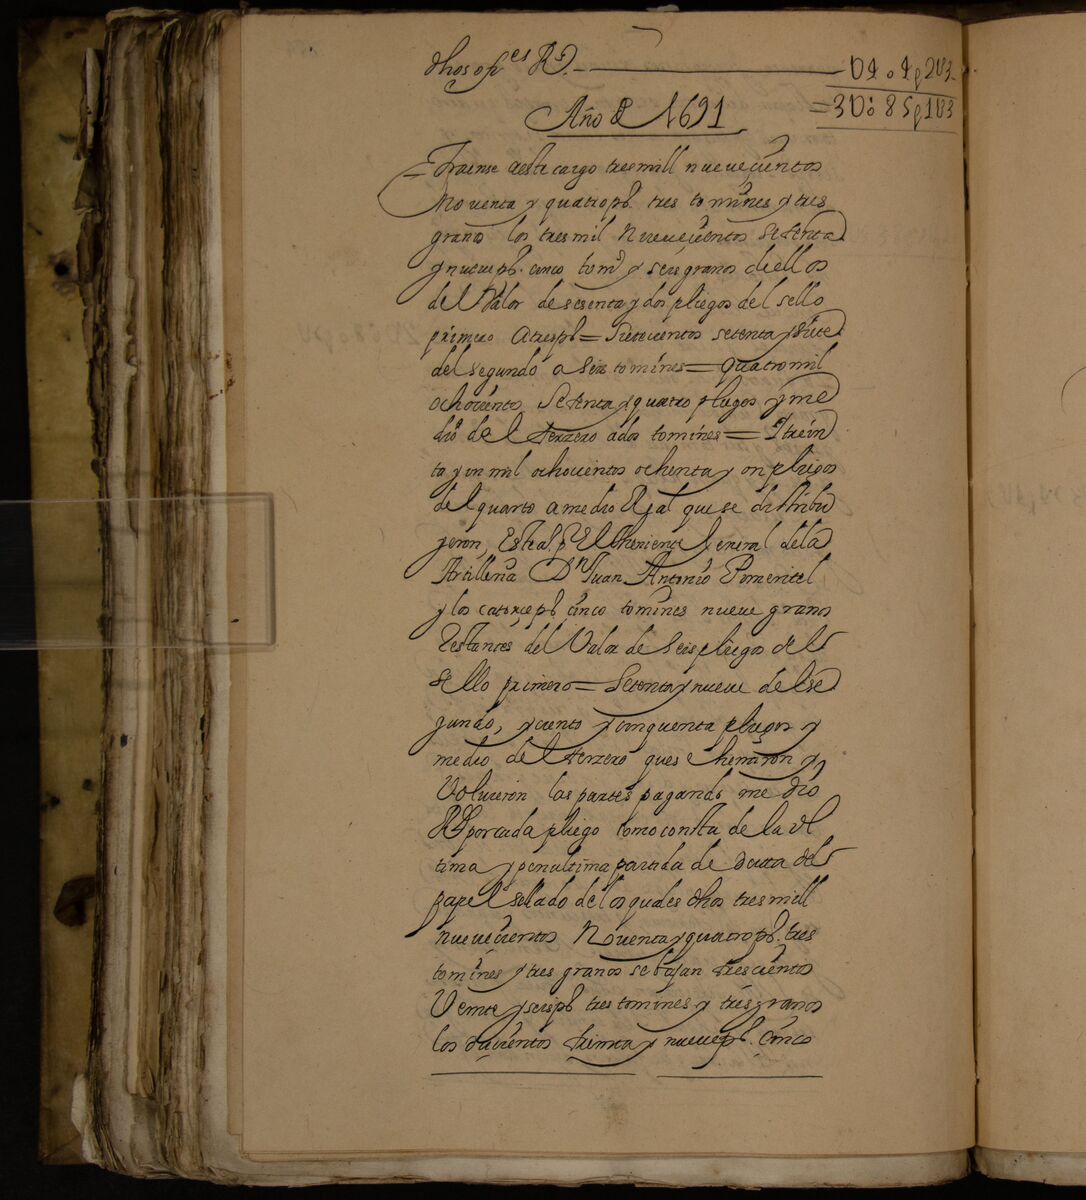 dhos ofes Rs. — U404p2U3
Año de 1691 =3Uo85p1U3
Traense a este cargo tres mill nuevecientos
Noventa y quatro ps. tres tomines y tres
granos los tres mil Nuevecientos Setenta
y nueve ps. cinco toms y seis granos de ellos
del Valor de sesenta y dos pliegos del sello
primero a tres ps = Setecientos setenta y siete
del segundo a seis tomines = quatro mil
ochocientos Setenta y quatro pliegos y me
dio del terzero a dos tomines = Y trein
ta y un mil ochocientos ochenta y on pliegos
del quarto a medio Real que se distribu
yeron, el Theniente General de la
Artilleria Dn Juan Antonio Pomentel
y los catorce ps cinco tomines nueve granos
Restantes del Valor de Seis pliegos del
sello primero = Setenta y nueve del se
gundo, y ciento y cinquenta pliegos y
medio del terzero que se herraron y
Volvieron las partes pagando medio
Rl por cada pliego como consta de la Vl
tima y penultima partida de data del
papel sellado de los quales dhos tres mill
nuevecientos Noventa y quatro ps. tres
tomines y tres granos se bajan trescientos
Veinte y seis ps tres tomines y tres granos
los ducientos treinta y nueve ps. cinco